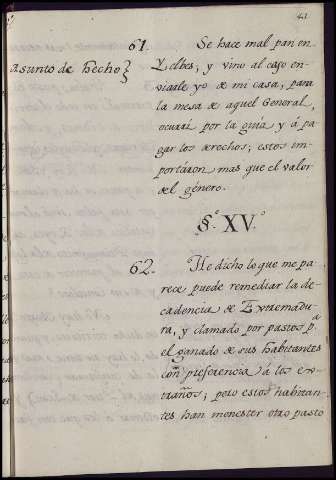 41
61.
Asunto de hecho}
Se hace mal pan en
Yelbes, y vino al caso en-
viarle yo de mi casa, para
la mesa de aquel General,
ocurrí por la guía y á pa-
gar los derechos; estos im-
portáron mas que el valor
del género.
§.º XV.º
62.
He dicho lo que me pa-
rece puede remediar la de-
cadencia de Extremadu-
ra, y clamado por pastos pª
el ganado de sus habitantes
con preferencia á los ex-
traños; pero estos habitan-
tes han menester otro pasto